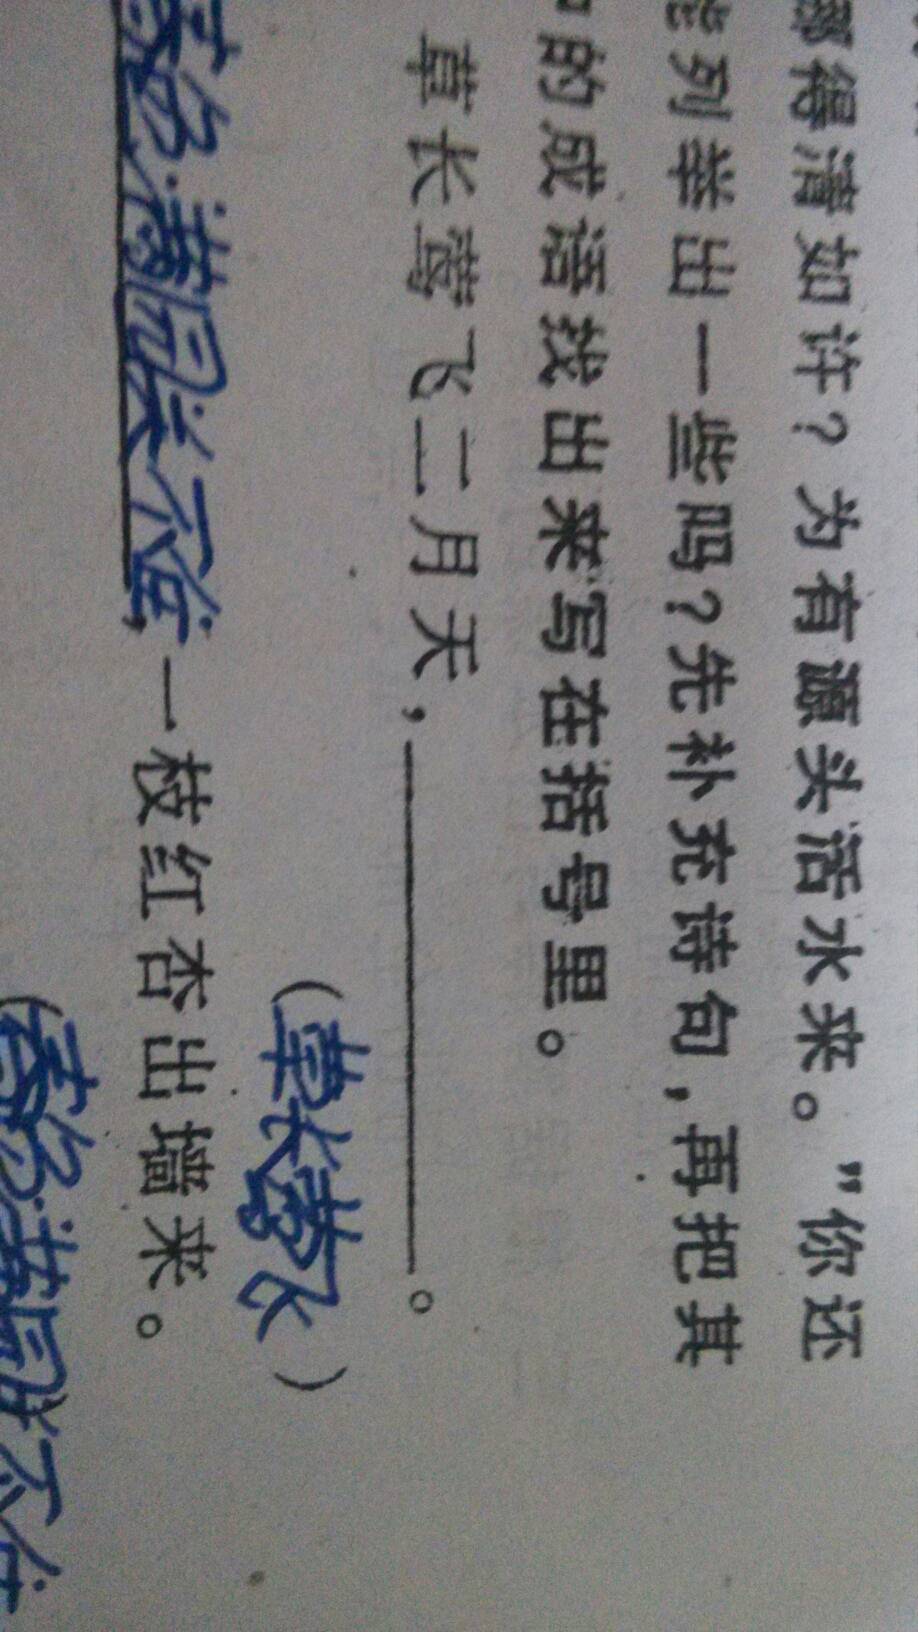 哪得清如许?为有源头活水来。”你还
能列举出一些吗?先补充诗句,再把其
中的成语找出来写在括号里。
草长莺飞二月天,。
(草长莺飞)
春色满园关不住一枝红杏出墙来。
(春色满园关不住